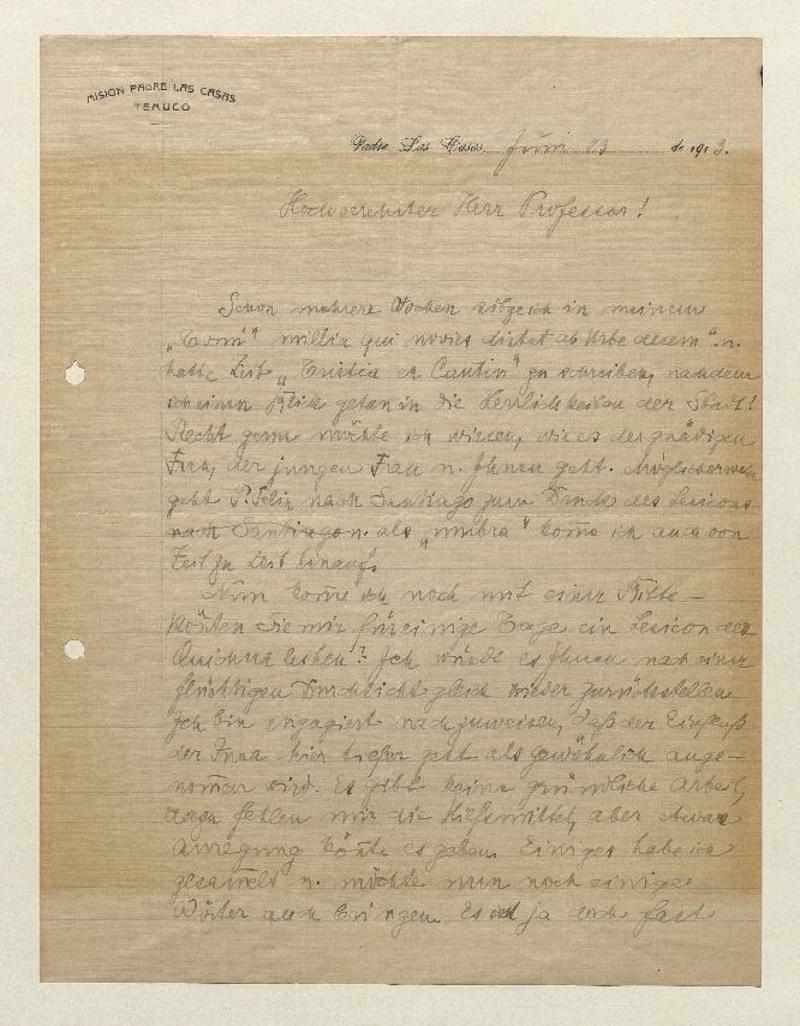 MISION PADRE LAS CASAS
TEMUCO
Padre Las Casas, Juni 13 de 1913.
Hochverehrter Herr Professor!
Schon mehrere Wochen sitze ich in meinem
„Tomi" millia qui novies distat ab Urbe decem". u.
hatte Zeit „Tristia ex Cautin" zu schreiben, nachdem
ich einen Blick getan in die Herrlichkeiten der Stadt!
Recht gerne möchte ich wissen, wie es der gnädigen
Frau, der jungen Frau u. Ihnen geht. Möglicherweise
geht P. Felix nach Santiago zum Druck des Lexicons
nach Santiago u. als „umbra" kom̄e ich auch von
Zeit zu Zeit hinauf.
Nun kom̄e ich noch mit einer Bitte –
kön̄ten Sie mir für einige Tage ein Lexicon des
Quichua leihen? Ich würde es Ihnen nach einer
flüchtigen Durchsicht gleich wieder zurückstellen
Ich bin engagiert nachzuweisen, daß der Einfluß
der Inca hier tiefer geht als gewöhnlich ange-
nom̄en wird. Es gibt keine gründliche Arbeit,
dazu fehlen mir die Hilfsmittel, aber etwas
Anregung kön̄te es geben. Einiges habe ich
gesam̄elt u. möchte nun noch einige
Wörter auch bringen. Es ist ja doch fast